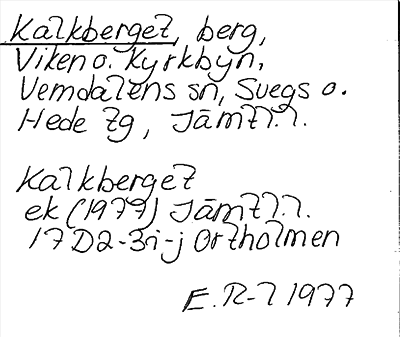 Kalkberget, berg,
Viken o. Kyrkbyn,
Vemdalens sn, Svegs o.
Hede tg, Jämtl.l.
Kalkberget
ek (1977) Jämtl.l.
17D2-3i-j Ortholmen
E.R-l 1977